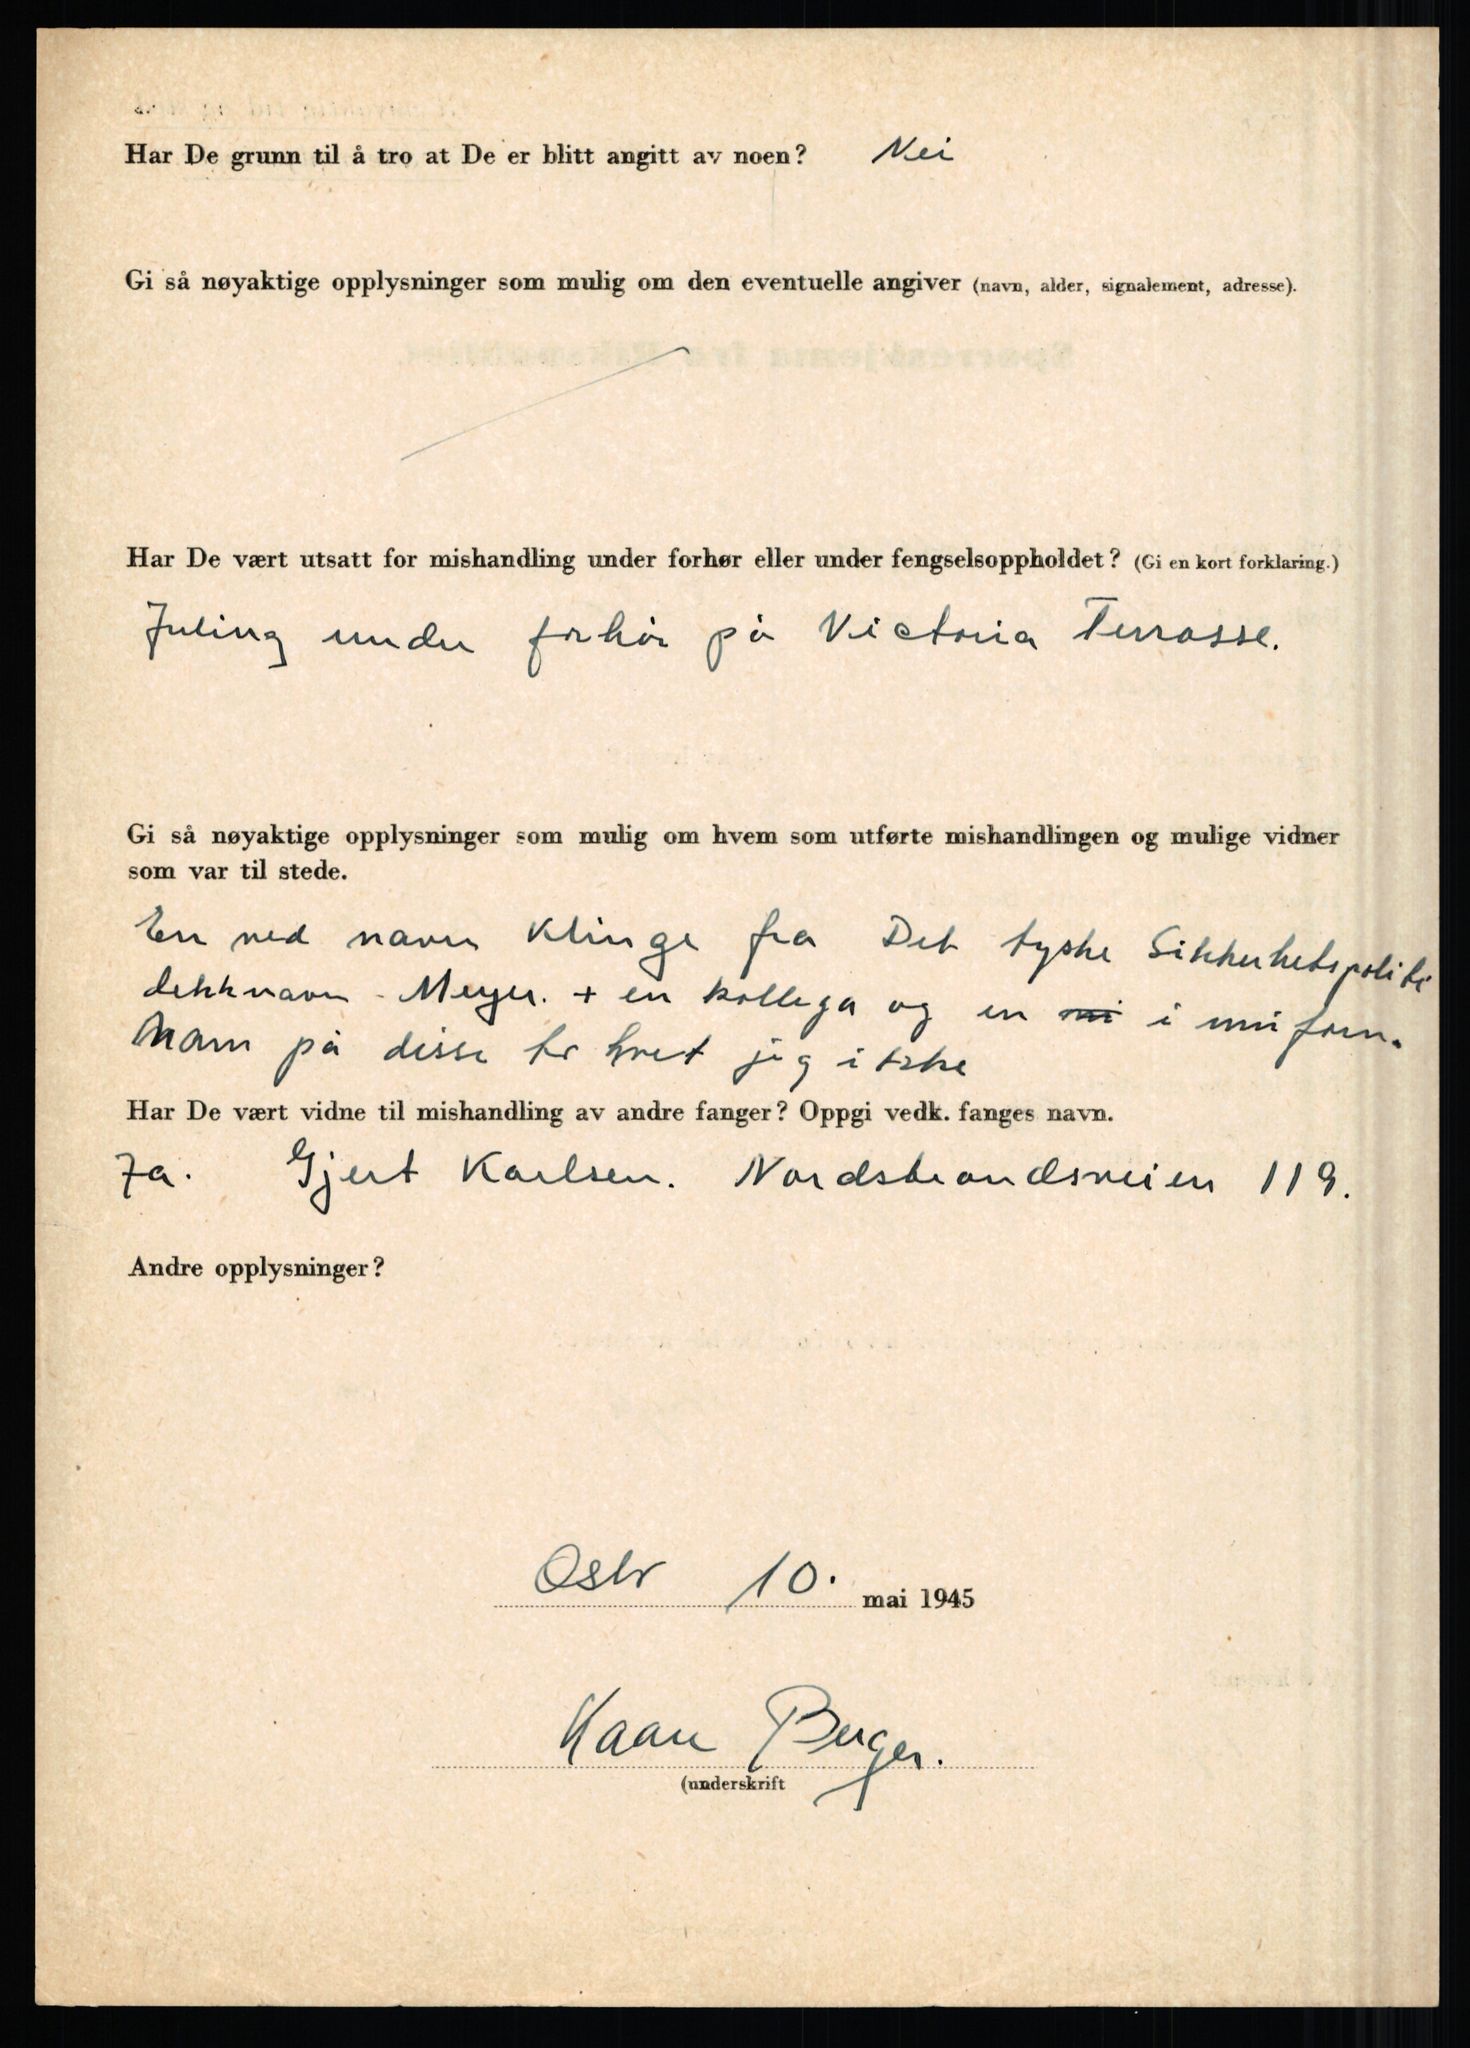 Har De grunn til å tro at De er blitt angitt av noen? Nei
Gi så nøyaktige opplysninger som mulig om den eventuelle angiver (navn, alder, signalement, adresse).
Har De vært utsatt for mishandling under forhør eller under fengselsoppholdet? (Gi en kort forklaring.)
Juling under forhør på Victoria Terrasse.
Gi så nøyaktige opplysninger som mulig om hvem som utførte mishandlingen og mulige vidner
som var til stede.
En ved navn Klinge fra Det tyske Sikkerhetspoliti
dekknavn - Meyer. + en kollega og en i uniform.
Navn på disse forhvet jeg ikke
Har De vært vidne til mishandling av andre fanger? Oppgi vedk. fanges navn.
Ja. Gjert Karlsen. Nordstrandsveien 119.
Andre opplysninger?
Oslo 10. mai 1945
Kaare Berger.
(underskrift